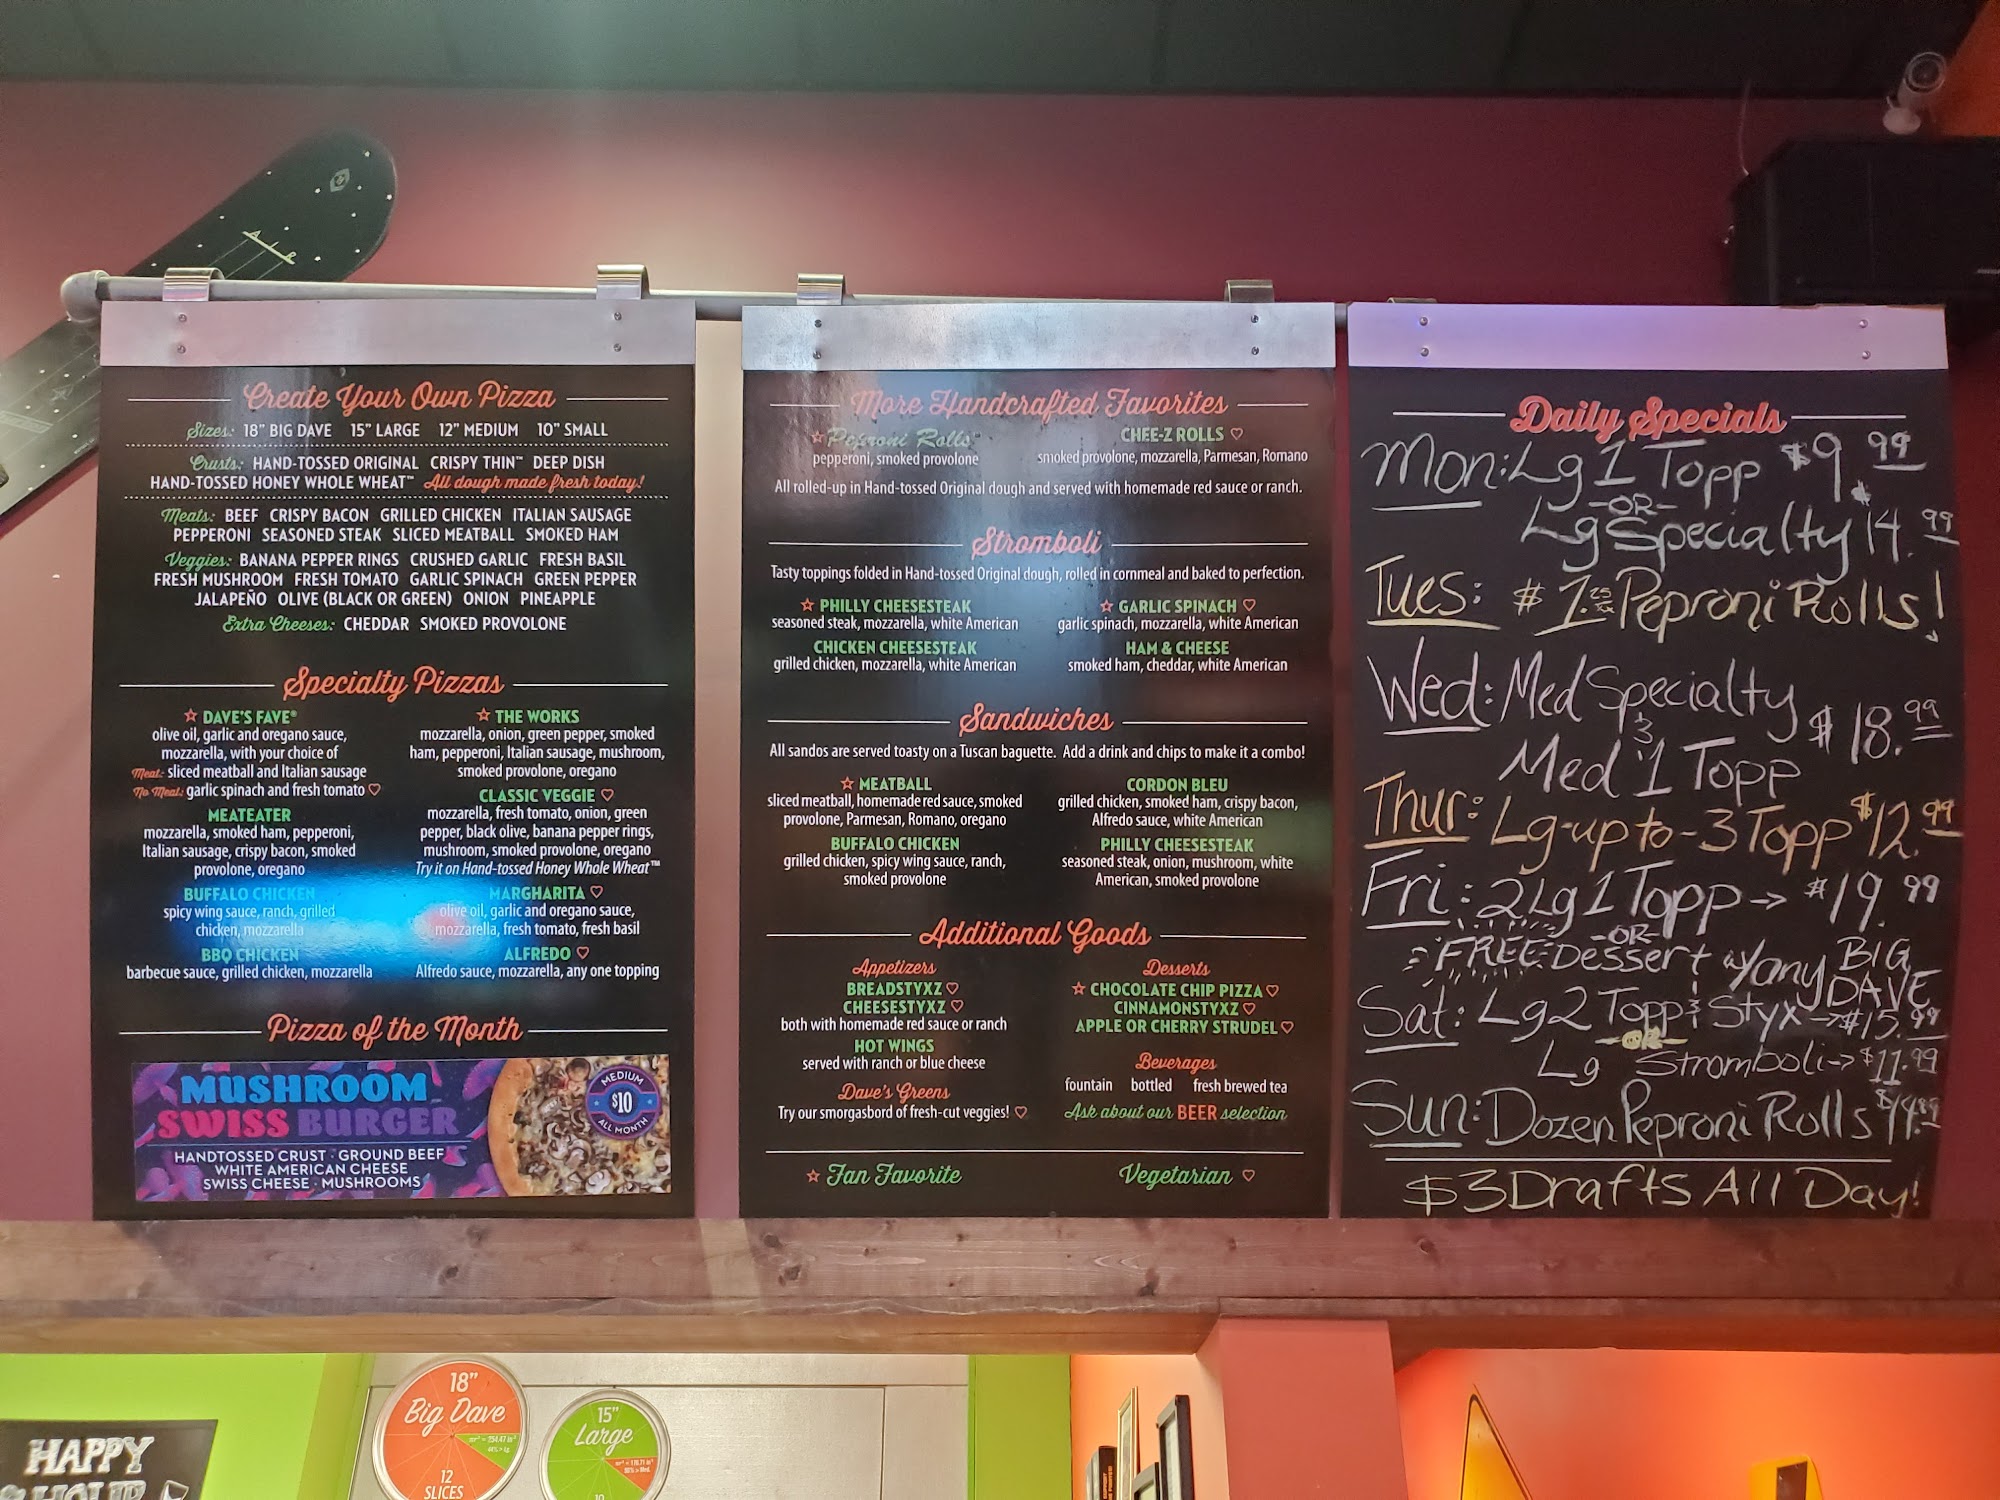 Create Your Own Pizza
Sizes: 18" BIG DAVE 15" LARGE 12" MEDIUM 10" SMALL
Crusts: HAND-TOSSED ORIGINAL CRISPY THIN™ DEEP DISH
HAND-TOSSED HONEY WHOLE WHEAT™ All dough made fresh today!
Meats: BEEF CRISPY BACON GRILLED CHICKEN ITALIAN SAUSAGE
PEPPERONI SEASONED STEAK SLICED MEATBALL SMOKED HAM
Veggies: BANANA PEPPER RINGS CRUSHED GARLIC FRESH BASIL
FRESH MUSHROOM FRESH TOMATO GARLIC SPINACH GREEN PEPPER
JALAPEÑO OLIVE (BLACK OR GREEN) ONION PINEAPPLE
Extra Cheeses: CHEDDAR SMOKED PROVOLONE
Specialty Pizzas
☆ DAVE'S FAVE®
olive oil, garlic and oregano sauce,
mozzarella, with your choice of
Meat: sliced meatball and Italian sausage
No Meat: garlic spinach and fresh tomato ♡
MEATEATER
mozzarella, smoked ham, pepperoni,
Italian sausage, crispy bacon, smoked
provolone, oregano
BUFFALO CHICKEN
spicy wing sauce, ranch, grilled
chicken, mozzarella
BBQ CHICKEN
barbecue sauce, grilled chicken, mozzarella
☆ THE WORKS
mozzarella, onion, green pepper, smoked
ham, pepperoni, Italian sausage, mushroom,
smoked provolone, oregano
CLASSIC VEGGIE ♡
mozzarella, fresh tomato, onion, green
pepper, black olive, banana pepper rings,
mushroom, smoked provolone, oregano
Try it on Hand-tossed Honey Whole Wheat™
MARGHARITA ♡
olive oil, garlic and oregano sauce,
mozzarella, fresh tomato, fresh basil
ALFREDO ♡
Alfredo sauce, mozzarella, any one topping
Pizza of the Month
MUSHROOM
SWISS BURGER
HANDTOSSED CRUST · GROUND BEEF
WHITE AMERICAN CHEESE
SWISS CHEESE · MUSHROOMS
MEDIUM
$10
ALL MONTH
More Handcrafted Favorites
☆ Peproni Rolls™
pepperoni, smoked provolone
CHEE-Z ROLLS ♡
smoked provolone, mozzarella, Parmesan, Romano
All rolled-up in Hand-tossed Original dough and served with homemade red sauce or ranch.
Stromboli
Tasty toppings folded in Hand-tossed Original dough, rolled in cornmeal and baked to perfection.
☆ PHILLY CHEESESTEAK
seasoned steak, mozzarella, white American
CHICKEN CHEESESTEAK
grilled chicken, mozzarella, white American
☆ GARLIC SPINACH ♡
garlic spinach, mozzarella, white American
HAM & CHEESE
smoked ham, cheddar, white American
Sandwiches
All sandos are served toasty on a Tuscan baguette. Add a drink and chips to make it a combo!
☆ MEATBALL
sliced meatball, homemade red sauce, smoked
provolone, Parmesan, Romano, oregano
BUFFALO CHICKEN
grilled chicken, spicy wing sauce, ranch,
smoked provolone
CORDON BLEU
grilled chicken, smoked ham, crispy bacon,
Alfredo sauce, white American
PHILLY CHEESESTEAK
seasoned steak, onion, mushroom, white
American, smoked provolone
Additional Goods
Appetizers
BREADSTYXZ ♡
CHEESESTYXZ ♡
both with homemade red sauce or ranch
HOT WINGS
served with ranch or blue cheese
Dave's Greens
Try our smorgasbord of fresh-cut veggies! ♡
Desserts
☆ CHOCOLATE CHIP PIZZA ♡
CINNAMONSTYXZ ♡
APPLE OR CHERRY STRUDEL ♡
Beverages
fountain bottled fresh brewed tea
Ask about our BEER selection
☆ Fan Favorite
Vegetarian ♡
Daily Specials
Mon: Lg 1 Topp $9.99
-OR-
Lg Specialty $14.99
Tues: $1.25 Peproni Rolls!
Wed: Med Specialty
& $18.99
Med 1 Topp
Thur: Lg-up to-3 Topp $12.99
Fri: 2 Lg 1 Topp → $19.99
-OR-
FREE Dessert w/any BIG DAVE
Sat: Lg 2 Topp & Styx → $15.99
-OR-
Lg Stromboli → $11.99
Sun: Dozen Peproni Rolls $14.99
$3 Drafts All Day!
AIR
HAPPY
HOUR
18"
Big Dave
12
SLICES
15"
Large
10